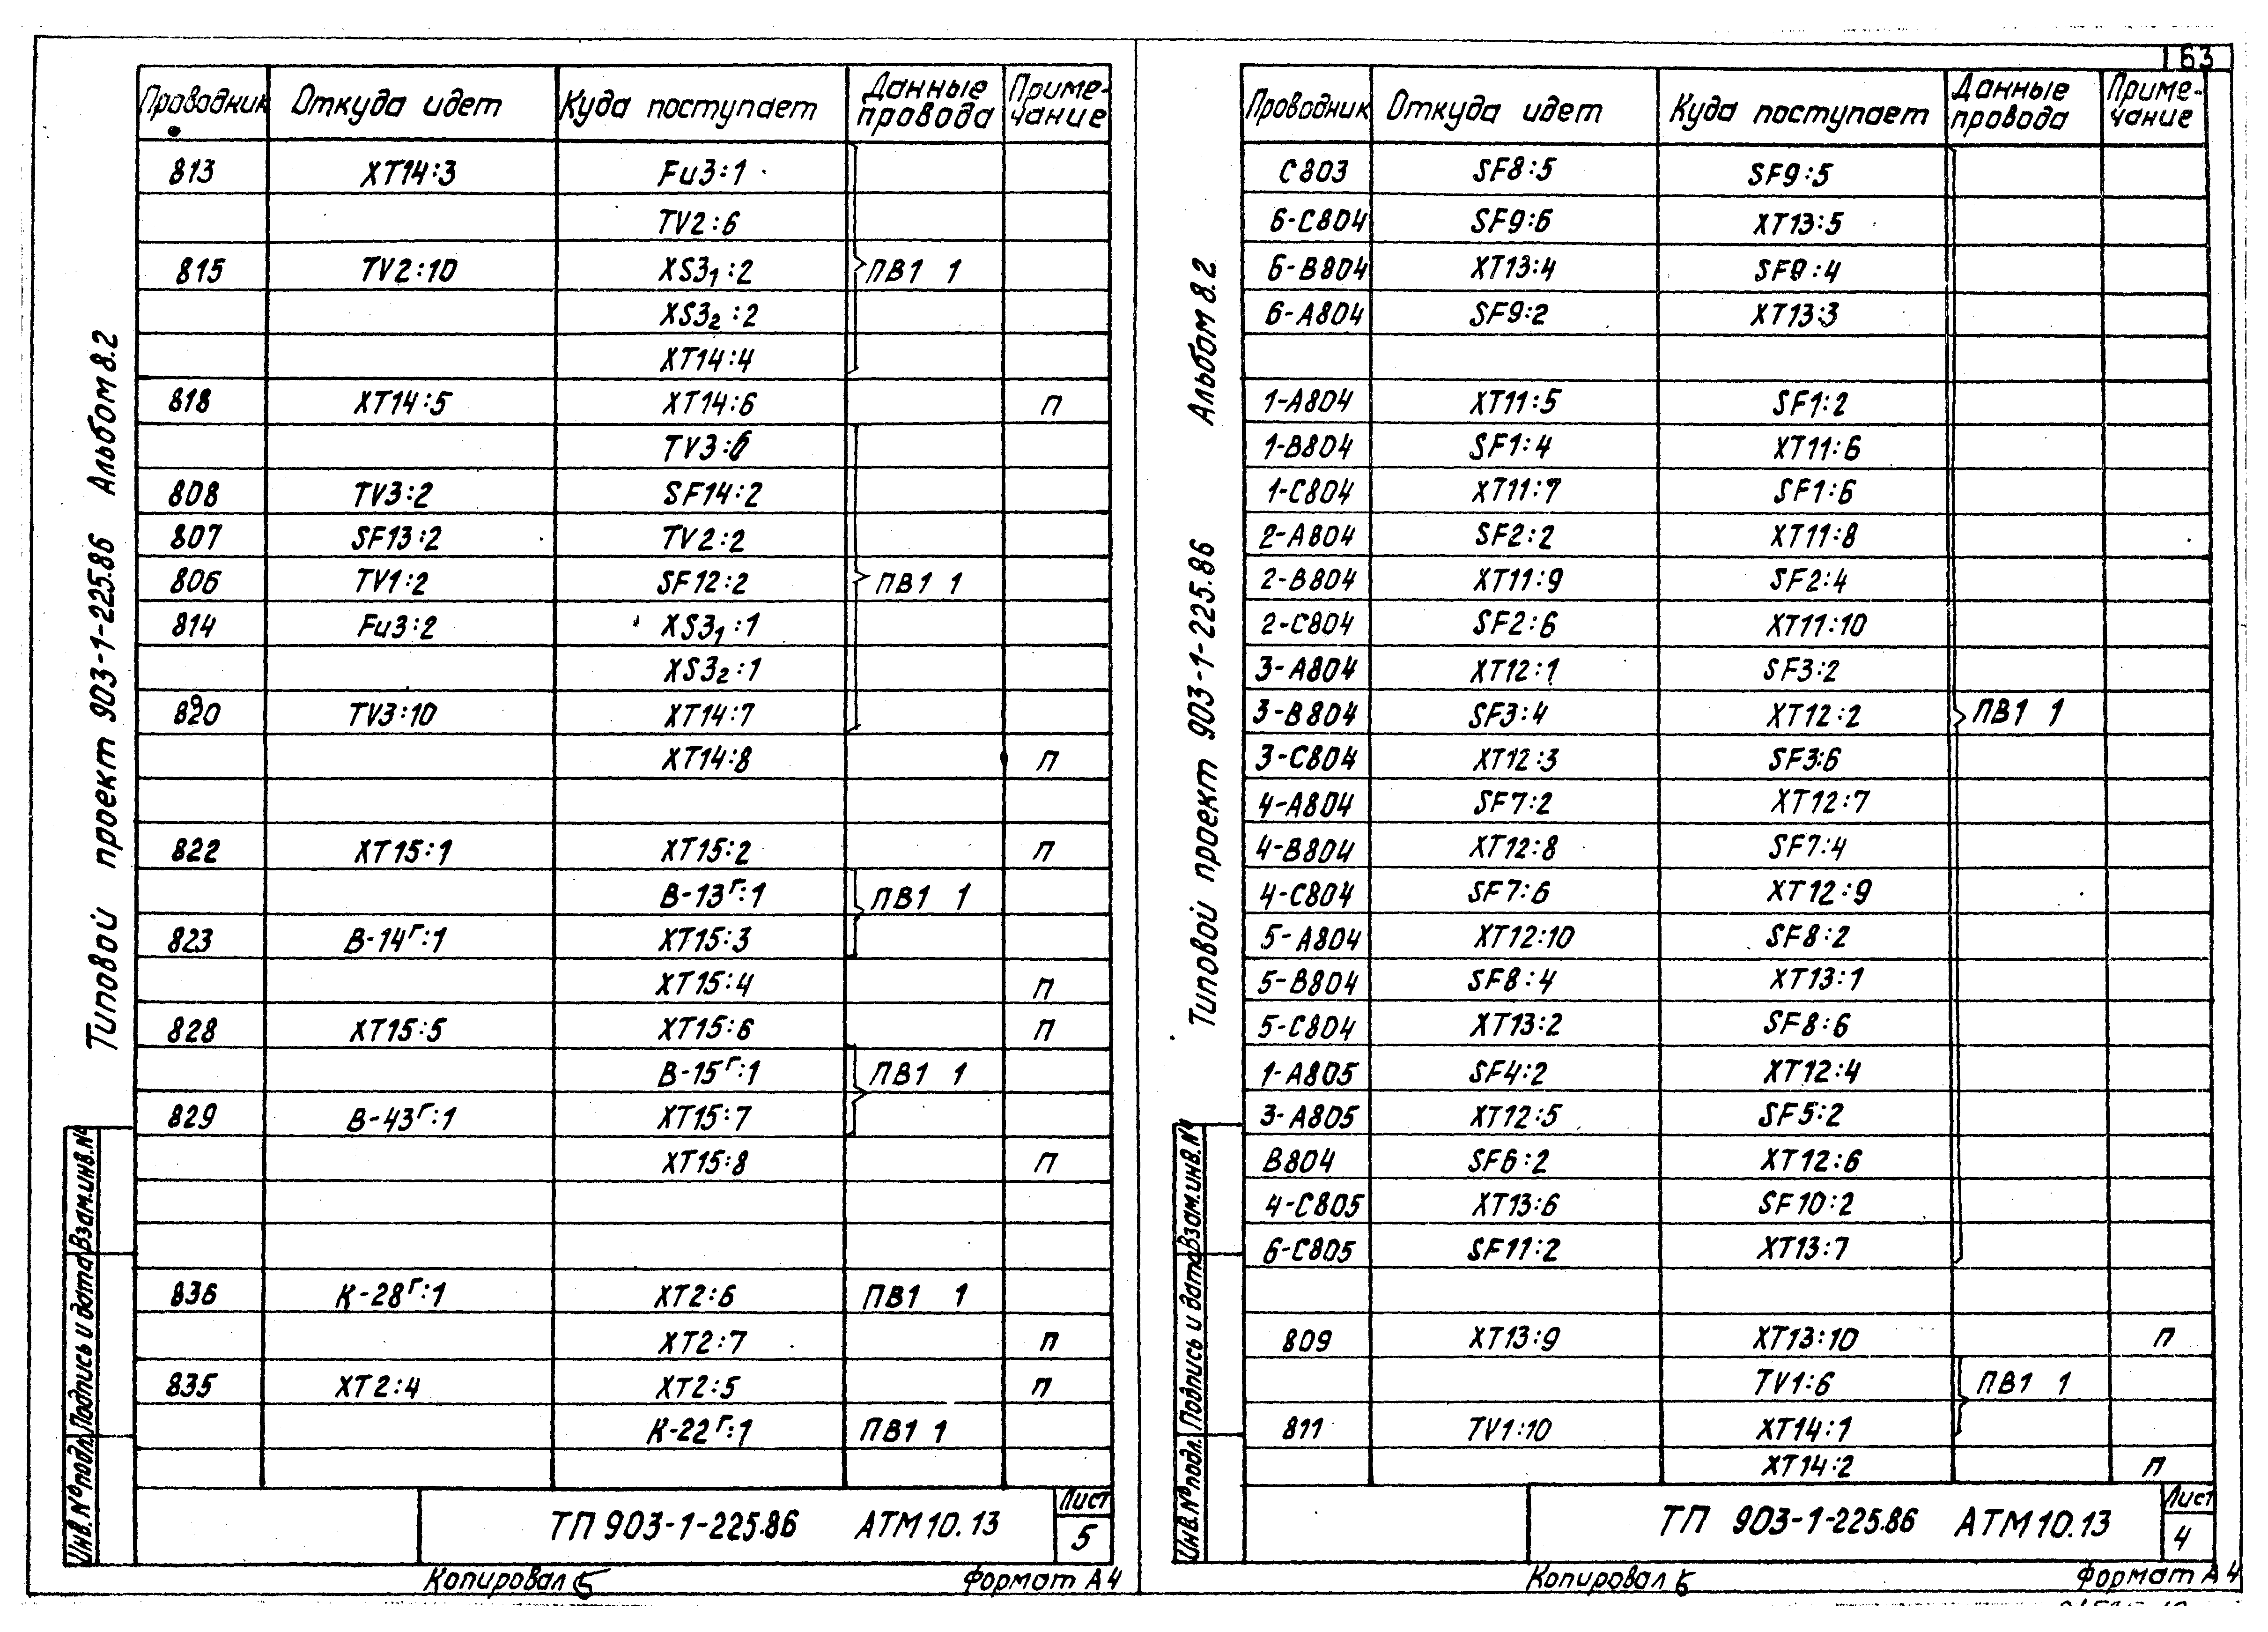 63
Проводник Откуда идет Куда поступает Данные провода Приме-чание
813 XT14:3 Fu3:1
TV2:6
815 TV2:10 XS3₁:2 ПВ1 1
XS3₂:2
XT14:4
818 XT14:5 XT14:6 П
TV3:6
808 TV3:2 SF14:2
807 SF13:2 TV2:2
806 TV1:2 SF12:2 ПВ1 1
814 Fu3:2 XS3₁:1
XS3₂:1
820 TV3:10 XT14:7
XT14:8 П
822 XT15:1 XT15:2 П
В-13г:1 ПВ1 1
823 В-14г:1 XT15:3
XT15:4 П
828 XT15:5 XT15:6 П
В-15г:1 ПВ1 1
829 В-43г:1 XT15:7
XT15:8 П
836 К-28г:1 XT2:6 ПВ1 1
XT2:7 П
835 XT2:4 XT2:5 П
К-22г:1 ПВ1 1
ТП 903-1-225.86 АТМ10.13
Лист
5
Копировал
Формат А4
Типовой проект 903-1-225.86 Альбом 8.2
Инв.№ подл. Подпись и дата Взам.инв.№
Проводник Откуда идет Куда поступает Данные провода Приме-чание
С803 SF8:5 SF9:5
6-С804 SF9:6 XT13:5
6-В804 XT13:4 SF9:4
6-А804 SF9:2 XT13:3
1-А804 XT11:5 SF1:2
1-В804 SF1:4 XT11:6
1-С804 XT11:7 SF1:6
2-А804 SF2:2 XT11:8
2-В804 XT11:9 SF2:4
2-С804 SF2:6 XT11:10
3-А804 XT12:1 SF3:2
3-В804 SF3:4 XT12:2 ПВ1 1
3-С804 XT12:3 SF3:6
4-А804 SF7:2 XT12:7
4-В804 XT12:8 SF7:4
4-С804 SF7:6 XT12:9
5-А804 XT12:10 SF8:2
5-В804 SF8:4 XT13:1
5-С804 XT13:2 SF8:6
1-А805 SF4:2 XT12:4
3-А805 XT12:5 SF5:2
В804 SF6:2 XT12:6
4-С805 XT13:6 SF10:2
6-С805 SF11:2 XT13:7
809 XT13:9 XT13:10 П
TV1:6 ПВ1 1
811 TV1:10 XT14:1
XT14:2 П
ТП 903-1-225.86 АТМ10.13
Лист
4
Копировал
Формат А4
Типовой проект 903-1-225.86 Альбом 8.2
Инв.№ подл. Подпись и дата Взам.инв.№